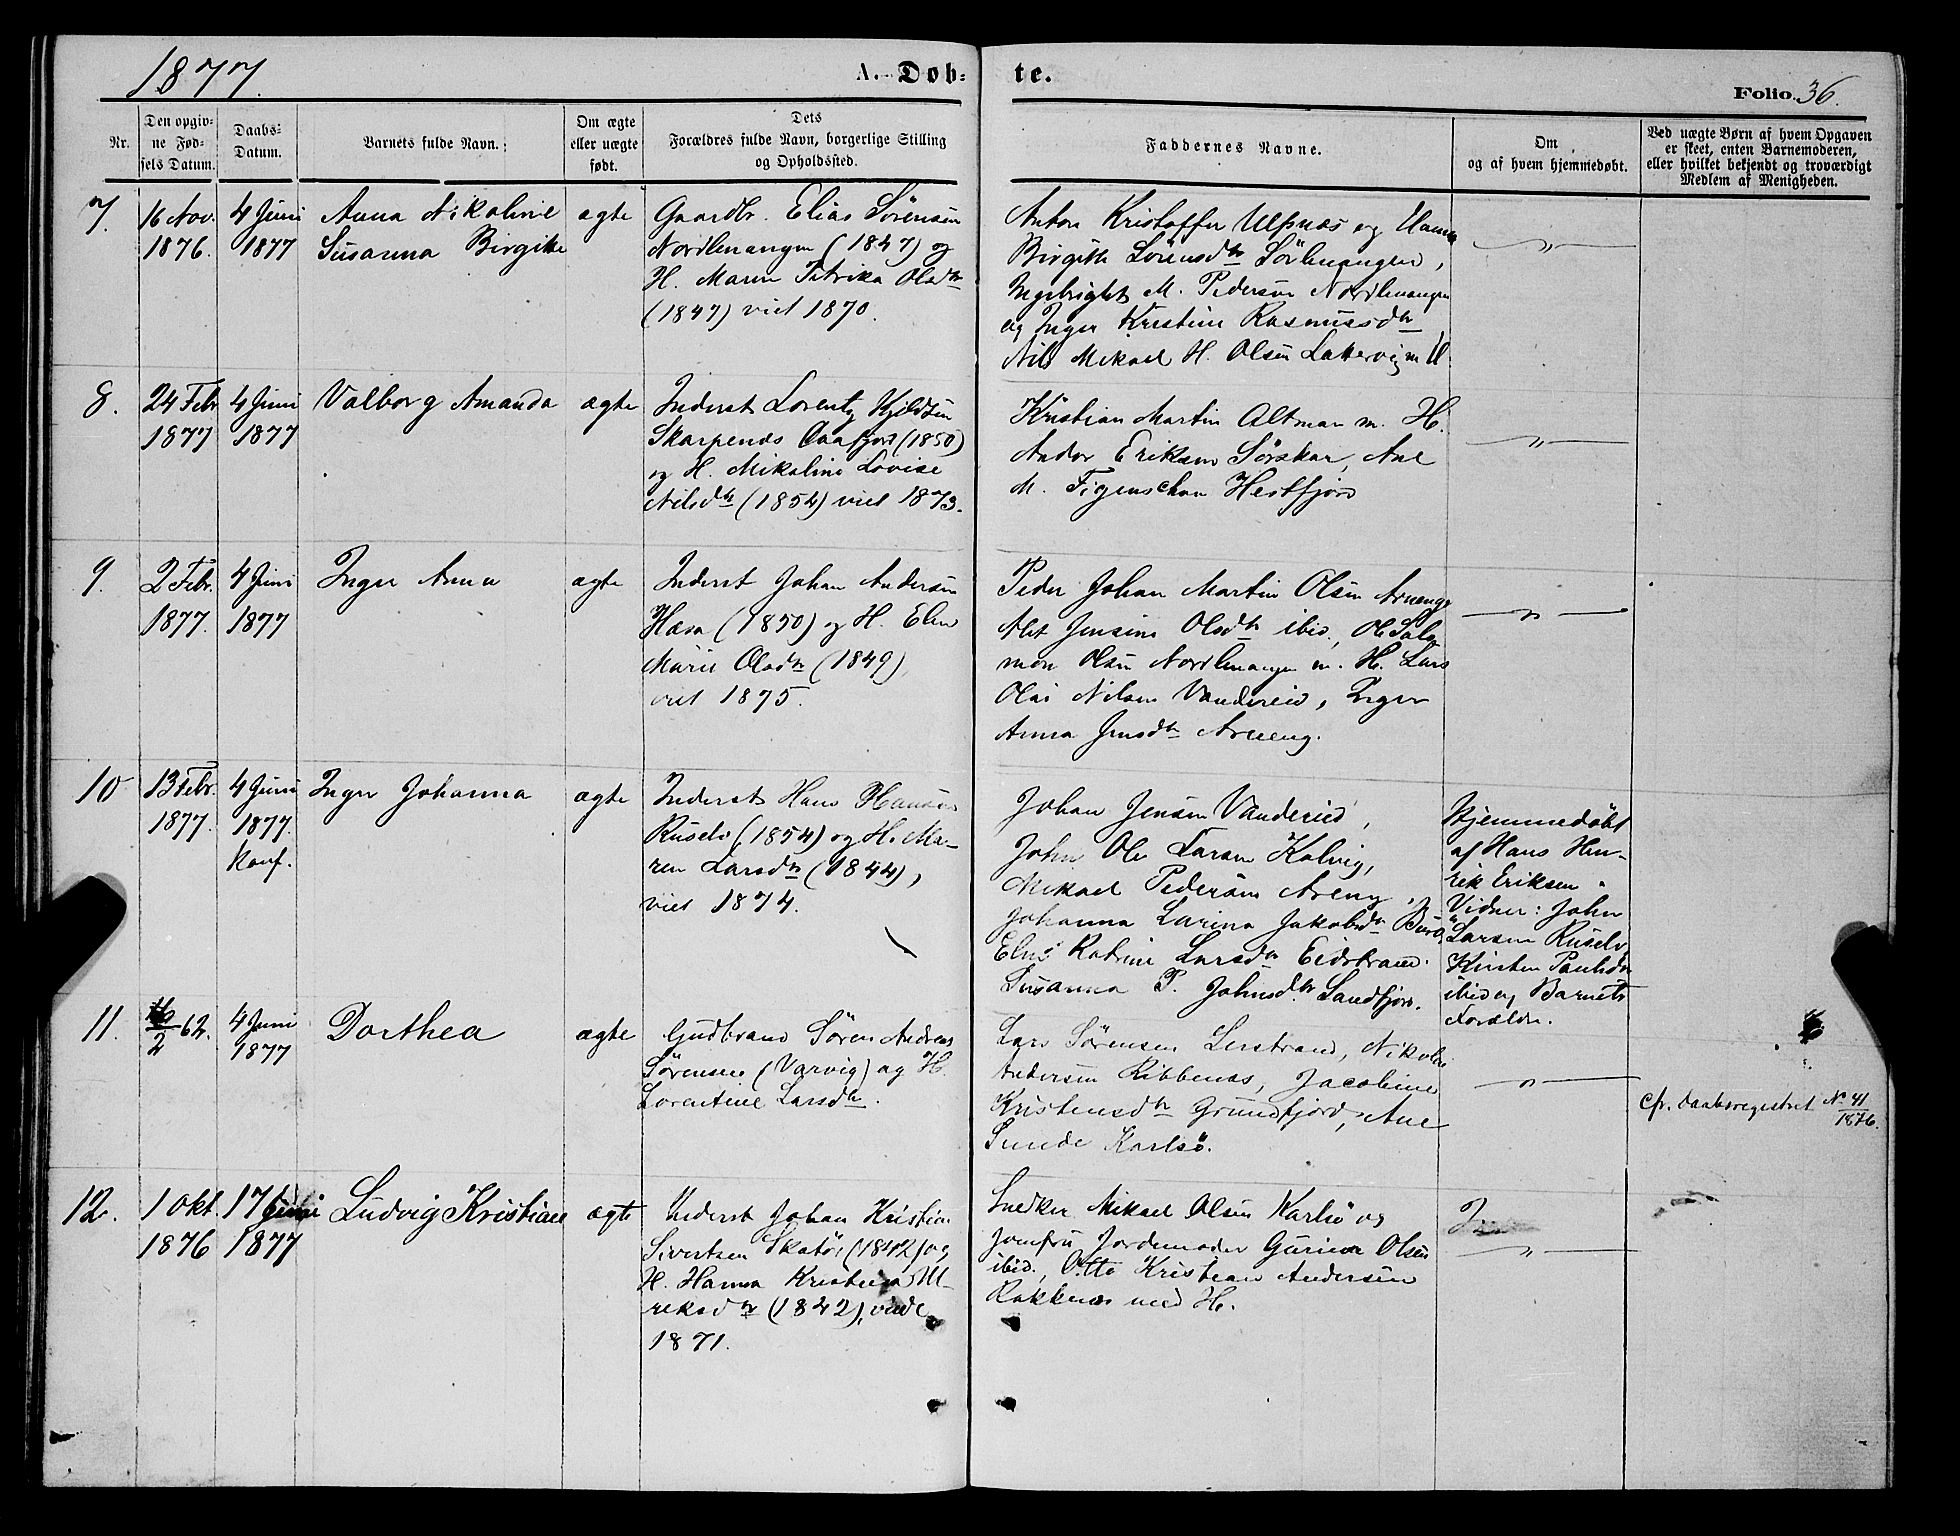 1877.
A. Döb-
te.
Folio 36.
Nr.
Den opgiv-
ne Fød-
sels Datum.
Daabs-
Datum.
Barnets fulde Navn.
Om ægte
eller uægte
født.
Dets
Forældres fulde Navn, borgerlige Stilling
og Opholdssted.
Faddernes Navne.
Om
og af hvem hjemmedøbt.
Ved uægte Børn af hvem Opgaven
er skeet, enten Barnemoderen,
eller hvilket bekjendt og troværdigt
Medlem af Menigheden.
7.
16 Nov.
1876.
4 Juni
1877
Anna Nikoline
Susanna Birgitte
ægte
Gaardbr. Elias Sörensen
Nordlenangen (1847) og
H. Maren Petrika Olsdtr
(1847) viet 1870.
Anton Kristoffer Ulfsnæs og Hanna
Birgitte Sörensdtr Sörlenangen,
Ingebrigt M. Pedersen Nordlenangen
og Inger Kristine Rasmusdtr
Nils Mikael H. Olsen Lattervig m H.
8.
24 Febr
1877
4 Juni
1877
Valborg Amanda
ægte
Inderst Lorentz Kjildsen
Skarpenæs (1850)
og H. Mikaline Lovise
Nilsdtr (1854) viet 1873.
Kristian Martin Altman m. H.
Andor Eriksen Sörskar, Ane
M. Figenschou Hestfjord
9.
2 Febr.
1877.
4 Juni
1877
Inger Anna
ægte
Inderst Johan Andersen
(1850) og H. Elen
Marie Olsdtr (1849),
viet 1875.
Peder Johan Martin Olsen Arneng
Jensine Olsdtr ibid., Ole Salo
mon Olsen Nordlenangen m. H. Lars
Olai Nilsen Vandereid, Inger
Anna Jensdtr Arneng.
10
13 Febr.
1877.
4 Juni
1877.
Konf.
Inger Johanna
ægte
Inderst Hans Hansen
Ruselv (1854) og H. Ma-
ren Larsdtr (1844),
viet 1874.
Johan Jensen Vandereid,
John Ole Larsen Kalvig,
Mikael Pedersen Areng,
Johanna Larina Jakobsdtr
Elen Katrine Larsdtr Eidstrand.
Susanna P. Johnsdtr. Sandfjord.
Hjemmedöbt
af Hans Hen-
rik Eriksen.
Vidner: John
Larsen Ruselv
Kirsten Paulsdtr
ibid og Barnets
Forældre.
11.
16/2 62.
4 Juni
1877
Dorthea
ægte
Gudbrand Sören Andreas
Sörensen (Varvig) og H.
Lorentine Larsdtr.
Lars Sörensen Lerstrand, Nikolai
Andersen Ribbenæs, Jacobine
Kristensdtr Grundfjord, Ane
Sunde Karlsö.
cfr. daabsregistret No 41/1876.
12.
1 Okt.
1876
17 Juni
1877
Ludvig Kristian
ægte
Inderst Johan Kristian
Sivertsen Skatör (1842) og
H. Hanna Kristina Ul-
riksdtr (1842), viede
1871.
Snedker Mikael Olsen Karlsö og
Jomfru Jordemoder Gurine Olsen
ibid., Otto Kristian Andersen
Rakkenæs med H.